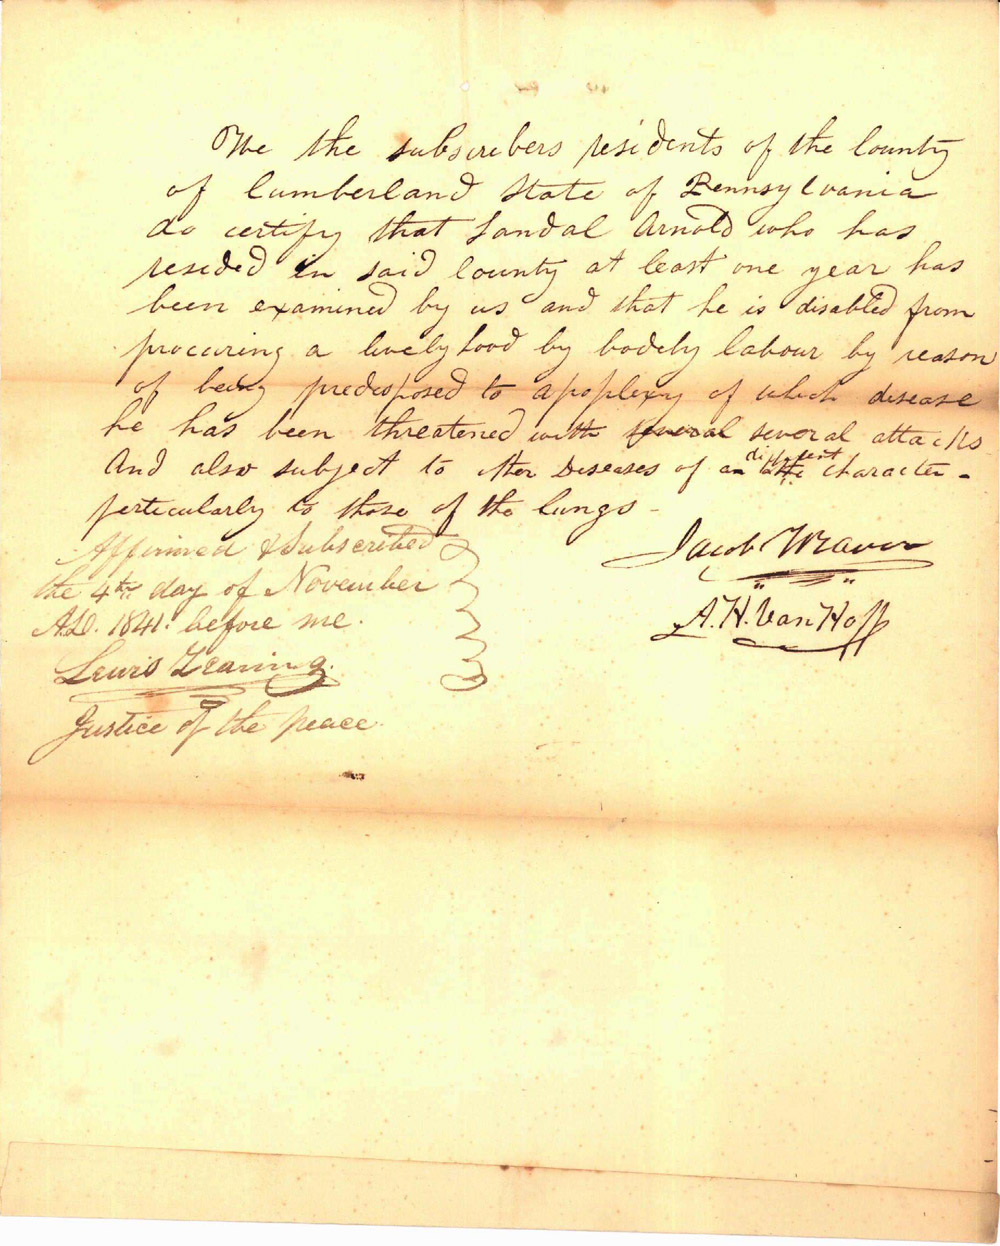 We the subscribers residents of the County
of Cumberland State of Pennsylvania
do certify that Sandal Arnold who has
resided in said County at least one year has
been examined by us and that he is disabled from
procuring a livelyhood by bodely labour by reason
of being predisposed to apoplexy of which disease
he has been threatened with several several attacks
And also subject to other Diseases of a different character -
perticularly to those of the lungs -
Jacob Weaver
A. H. Van Hoff
Affirmed & Subscribed
the 4th day of November
A.D. 1841. before me.
Lewis
Justice of the peace